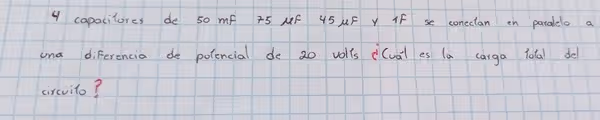 4 capacitores de 50 mF 75 µF 45 µF y 1F se conectan en paralelo a
una diferencia de potencial de 20 volts ¿Cuál es la carga total del
circuito?